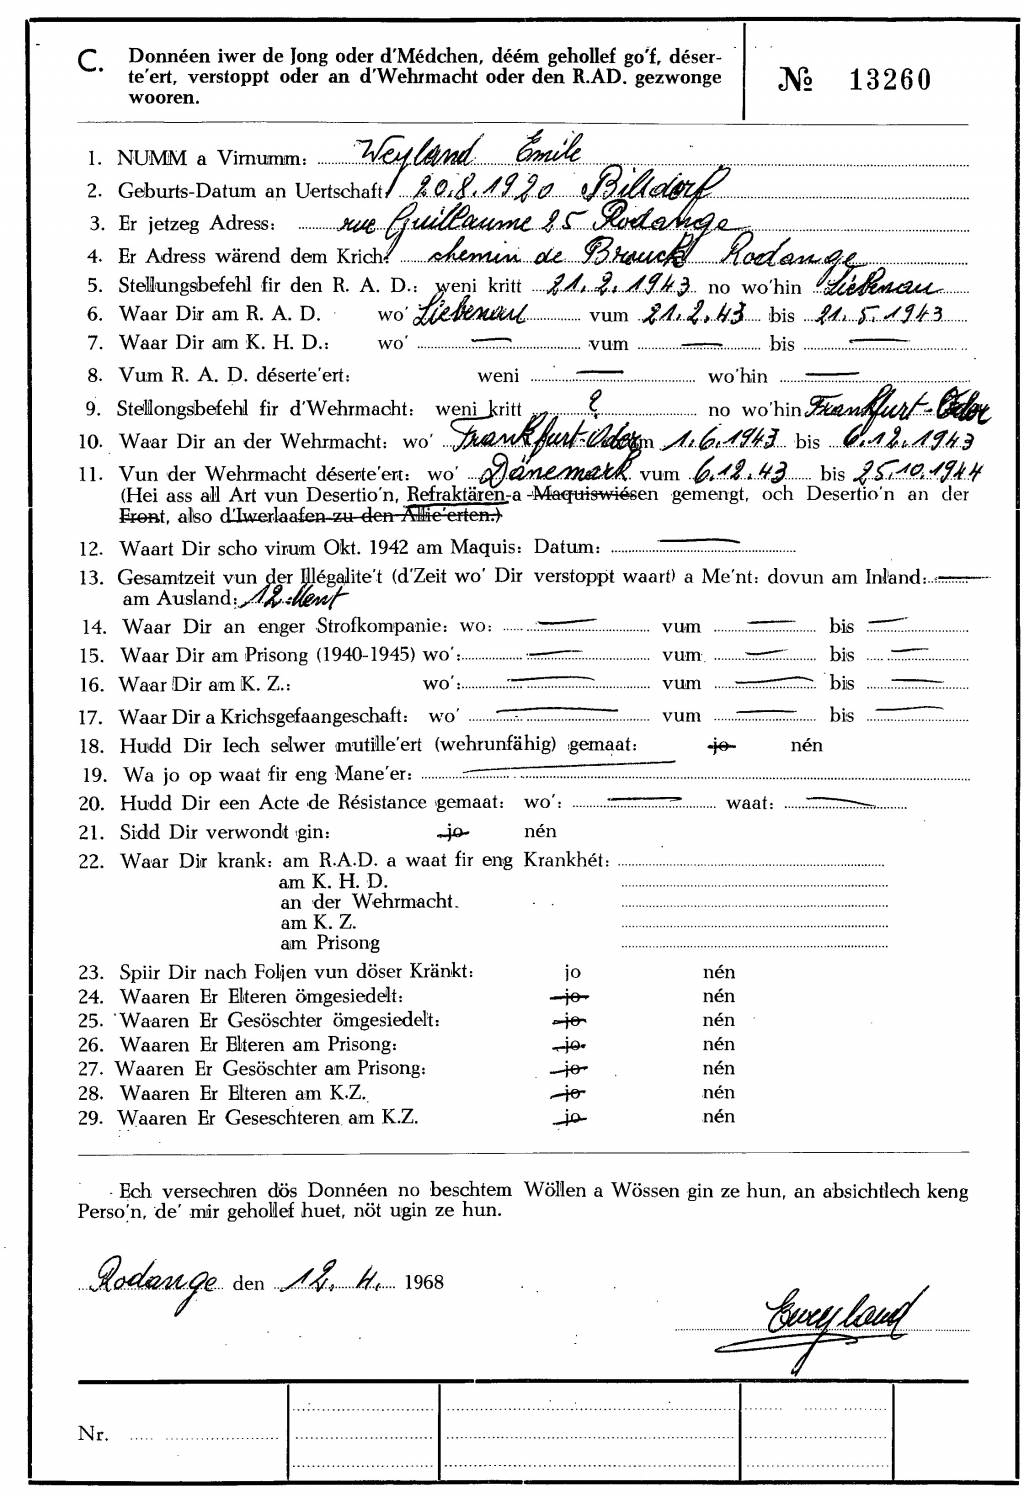 C. Donnéen iwer de Jong oder d'Médchen, déém gehollef go'f, déser-
te'ert, verstoppt oder an d'Wehrmacht oder den R.AD. gezwonge
wooren.
№ 13260
1. NUMM a Virnumm: Weyland Emile
2. Geburts-Datum an Uertschaft: 20.8.1920 Bilsdorf
3. Er jetzeg Adress: rue Guillaume 25 Rodange
4. Er Adress wärend dem Krich: chemin de Brouck Rodange
5. Stellungsbefehl fir den R. A. D.: weni kritt 21.2.1943 no wo'hin Liebenau
6. Waar Dir am R. A. D. wo' Liebenau vum 21.2.43 bis 21.5.1943
7. Waar Dir am K. H. D.: wo' — vum — bis —
8. Vum R. A. D. déserte'ert: weni — wo'hin —
9. Stellongsbefehl fir d'Wehrmacht: weni kritt ? no wo'hin Frankfurt-Oder
10. Waar Dir an der Wehrmacht: wo' Frankfurt-Oder vum 1.6.1943 bis 6.12.1943
11. Vun der Wehrmacht déserte'ert: wo' Dänemark vum 6.12.43 bis 25.10.1944
(Hei ass all Art vun Desertio'n, Refraktären a Maquiswiésen gemengt, och Desertio'n an der
Front, also d'Iwerlaafen zu den Allie'erten.)
12. Waart Dir scho virum Okt. 1942 am Maquis: Datum: —
13. Gesamtzeit vun der Illégalite't (d'Zeit wo' Dir verstoppt waart) a Me'nt: dovun am Inland: —
am Ausland: 12 Ment
14. Waar Dir an enger Strofkompanie: wo: — vum — bis —
15. Waar Dir am Prisong (1940-1945) wo': — vum — bis —
16. Waar Dir am K. Z.: wo': — vum — bis —
17. Waar Dir a Krichsgefaangeschaft: wo' — vum — bis —
18. Hudd Dir Iech selwer mutille'ert (wehrunfähig) gemaat: jo nén
19. Wa jo op waat fir eng Mane'er: —
20. Hudd Dir een Acte de Résistance gemaat: wo': — waat: —
21. Sidd Dir verwondt gin: jo nén
22. Waar Dir krank: am R.A.D. a waat fir eng Krankhét:
am K. H. D.
an der Wehrmacht.
am K. Z.
am Prisong
23. Spiir Dir nach Foljen vun döser Kränkt: jo nén
24. Waaren Er Elteren ömgesiedelt: jo nén
25. Waaren Er Gesöschter ömgesiedelt: jo nén
26. Waaren Er Elteren am Prisong: jo nén
27. Waaren Er Gesöschter am Prisong: jo nén
28. Waaren Er Elteren am K.Z. jo nén
29. Waaren Er Geseschteren am K.Z. jo nén
Ech versechren dös Donnéen no beschtem Wöllen a Wössen gin ze hun, an absichtlech keng
Perso'n, de' mir gehollef huet, nöt ugin ze hun.
Rodange den 12. 4. 1968
EWeyland
Nr.